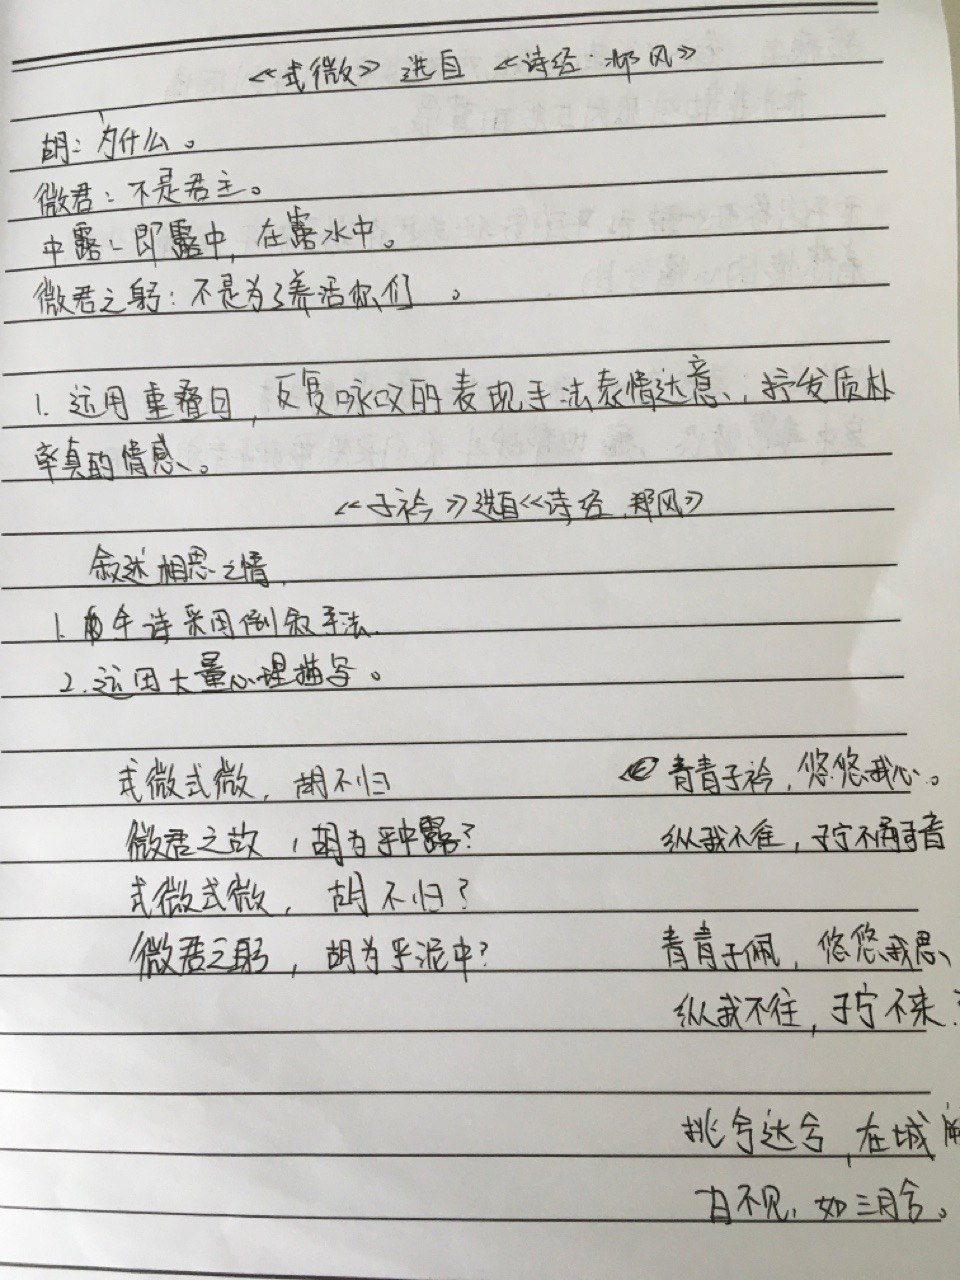 《式微》 选自 《诗经 邶风》
胡：为什么。
微君：不是君主。
中露：即露中，在露水中。
微君之躬：不是为了养活你们 。
1. 运用重叠句，反复咏叹的表现手法表情达意，抒发质朴
率真的情感。
《子衿》选自《诗经 郑风》
叙述相思之情.
1. 全诗采用倒叙手法.
2. 运用大量心理描写。
式微式微，胡不归
微君之故，胡为乎中露？
式微式微，胡不归？
微君之躬，胡为乎泥中？
青青子衿，悠悠我心。
纵我不往，子宁不嗣音
青青子佩，悠悠我思、
纵我不往，子宁不来？
挑兮达兮，在城
不见，如三月兮。